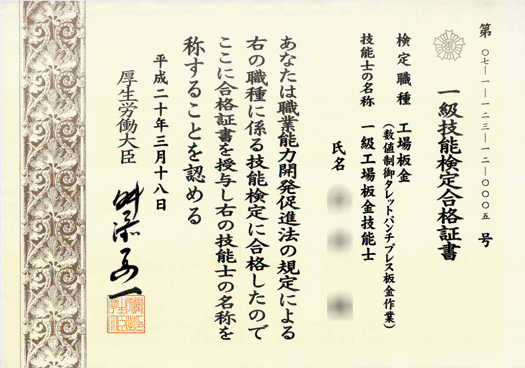 第〇七―一―一二三―一二―〇〇〇五号
一級技能検定合格証書
検定職種 工場板金
(数値制御タレットパンチプレス板金作業)
技能士の名称 一級工場板金技能士
氏名
あなたは職業能力開発促進法の規定による
右の職種に係る技能検定に合格したので
ここに合格証書を授与し右の技能士の名称を
称することを認める
平成二十年三月十八日
厚生労働大臣
舛添要一